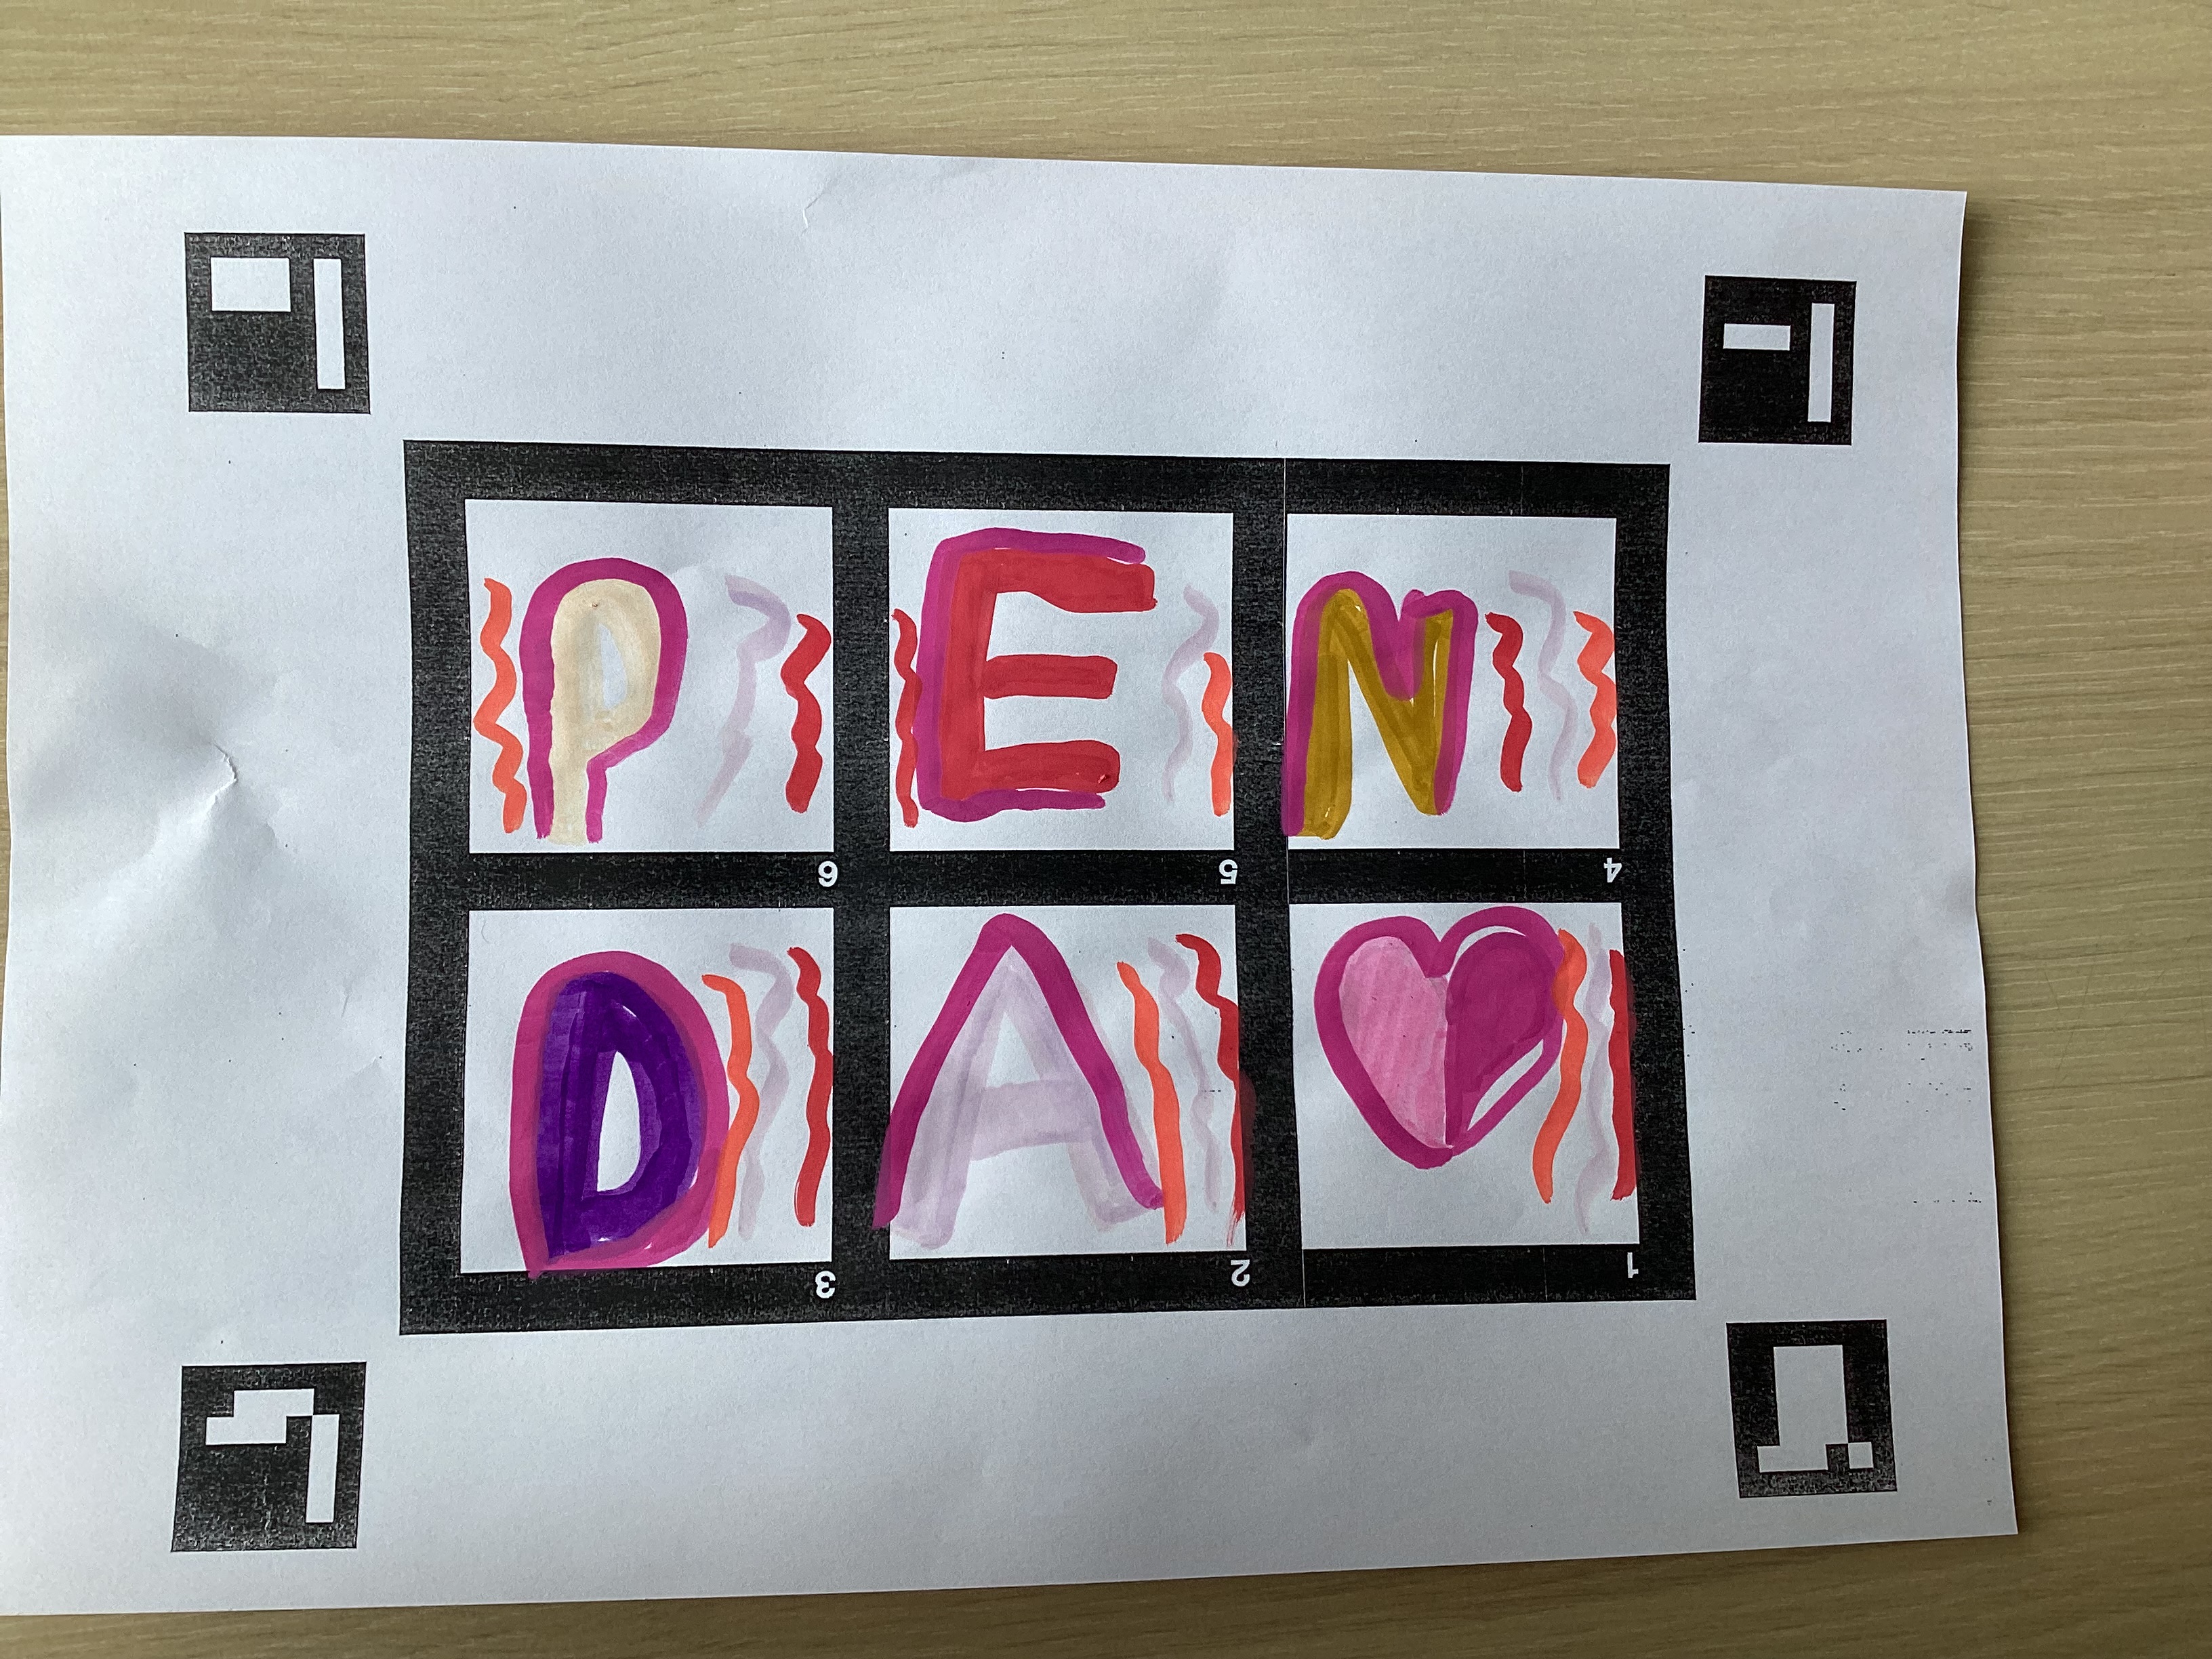 PEN
6 5 4
DA♥
3 2 1